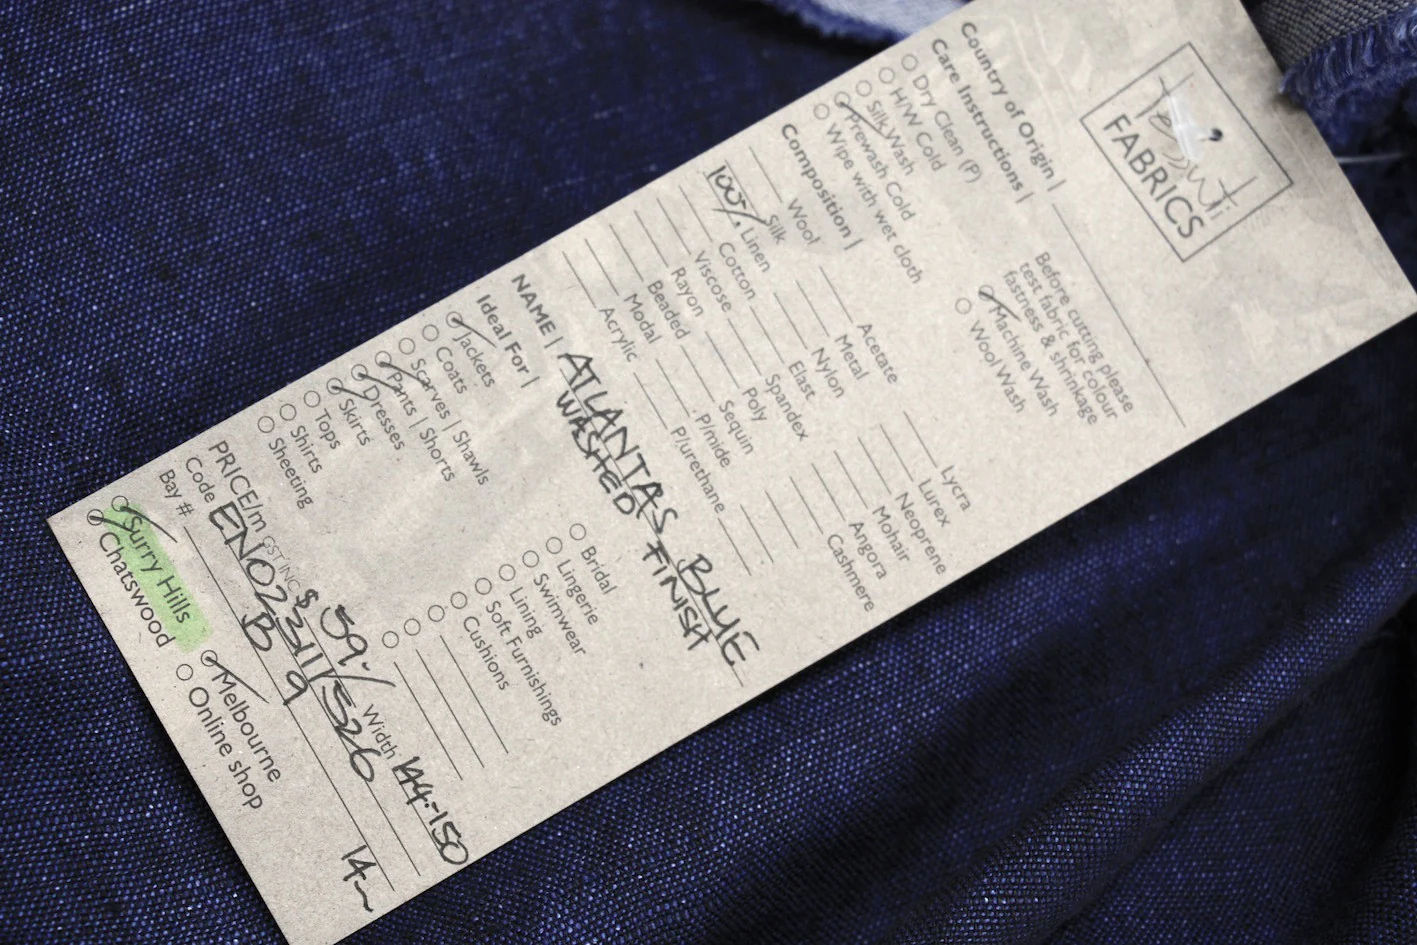 Tessuti
FABRICS
Country of Origin |
Care Instructions |
Dry Clean (P)
H/W Cold
Silk Wash
Prewash Cold
Wipe with wet cloth
Before cutting please
test fabric for colour
fastness & shrinkage
Machine Wash
Wool Wash
Composition |
Wool Acetate Lycra
Silk Metal Lurex
100% Linen Nylon Neoprene
Cotton Elast Mohair
Viscose Spandex Angora
Rayon Poly Cashmere
Beaded Sequin
Modal P/mide
Acrylic P/urethane
NAME | ATLANTAS BLUE
WASHED FINISH
Ideal For |
Jackets Bridal
Coats Lingerie
Scarves | Shawls Swimwear
Pants | Shorts Lining
Dresses Soft Furnishings
Skirts Cushions
Tops
Shirts
Sheeting
PRICE/m GST INC $ 59.- Width 144-150
Code ENO2311/526
Bay #: B 9 14~
Surry Hills Melbourne
Chatswood Online shop